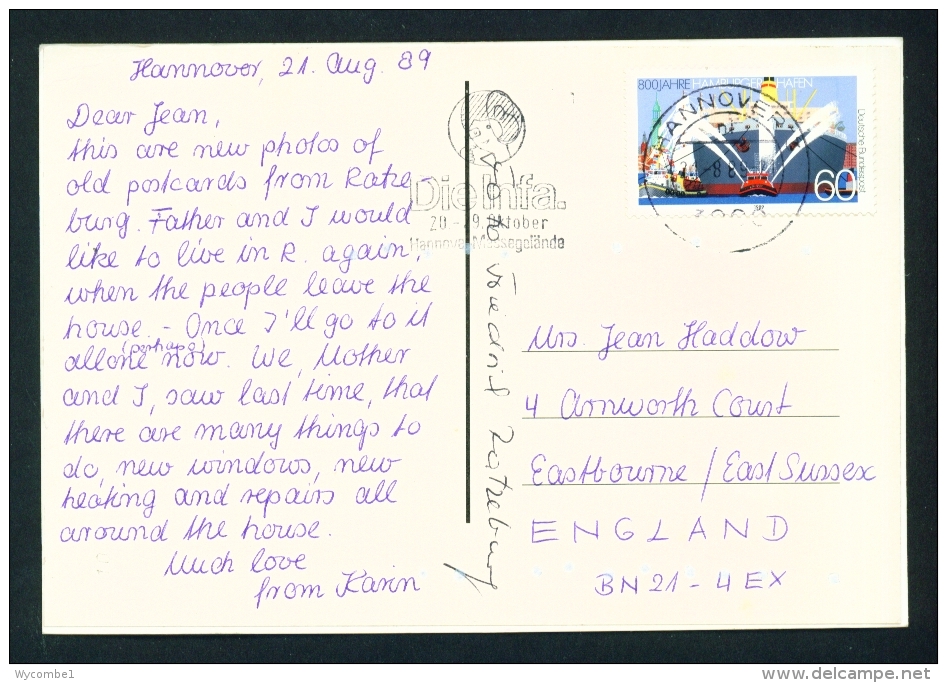 Hannover, 21. Aug. 89
Dear Jean,
this are new photos of
old postcards from Ratze-
burg. Father and I would
like to live in R. again,
when the people leave the
house. - Once I'll go to it
allone (perhaps) now. We, Mother
and I, saw last time, that
there are many things to
do, new windows, new
heating and repairs all
around the house.
Much love
from Karin
Die Infa.
20 - 29. Oktober
Hannover-Messegelände
Ratzeburg
800 JAHRE HAMBURGER HAFEN
Deutsche Bundespost
60
HANNOVER
Mrs. Jean Haddow
4 Arnworth Court
Eastbourne / East Sussex
ENGLAND
BN21-4EX
Wycombe1
http://www.delcampe.net